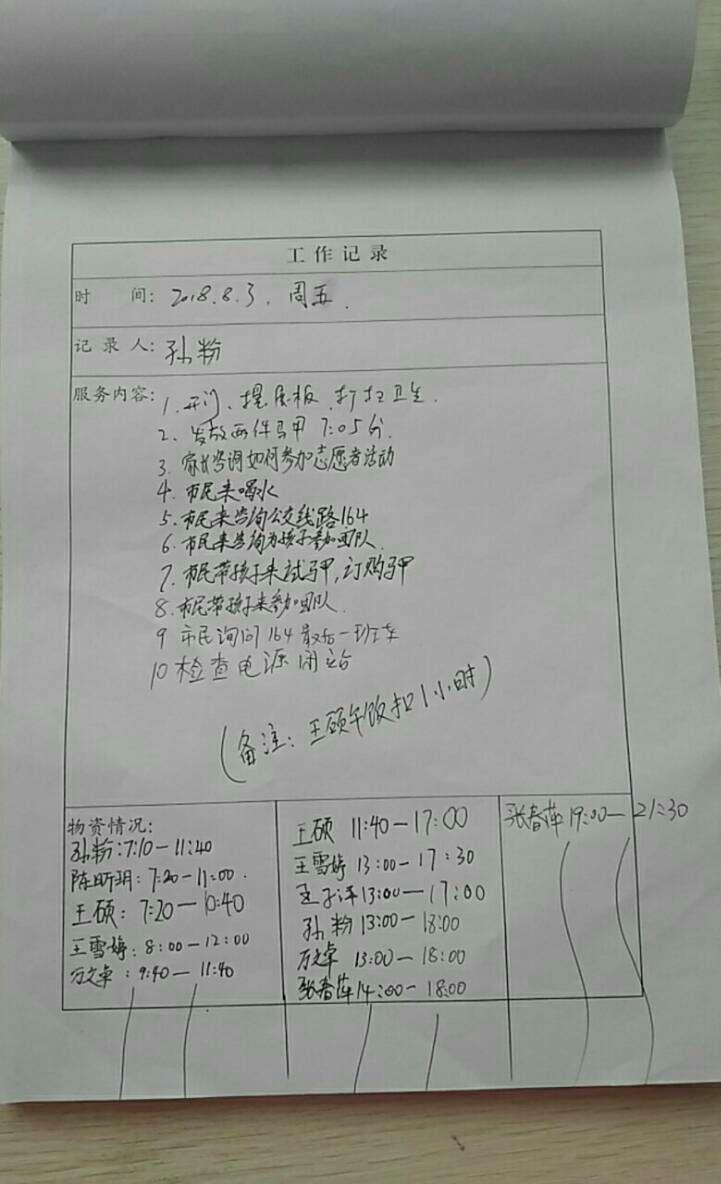 工作记录
时 间: 2018.8.3. 周五.
记录人: 孙粉
服务内容: 1. 开门、摆展板、打扫卫生.
2. 发放两件马甲 7:05分.
3. 家长咨询如何参加志愿者活动
4. 市民来喝水
5. 市民来咨询公交线路164
6. 市民来咨询为孩子参加团队.
7. 市民带孩子来试马甲,订购马甲
8. 市民带孩子来参加团队.
9 市民询问164最后一班车
10 检查电源闭站
(备注: 王硕午饭扣1小时)
物资情况:
孙粉:7:10—11:40
陈昕玥: 7:20—11:00.
王硕: 7:20—10:40
王雪婷: 8:00—12:00
万文卓: 9:40—11:40
王硕 11:40—17:00
王雪婷 13:00—17:30
孟子洋 13:00—17:00
孙粉 13:00—18:00
万文卓 13:00—18:00
张春萍 14:00—18:00
张春萍 19:00—21:30